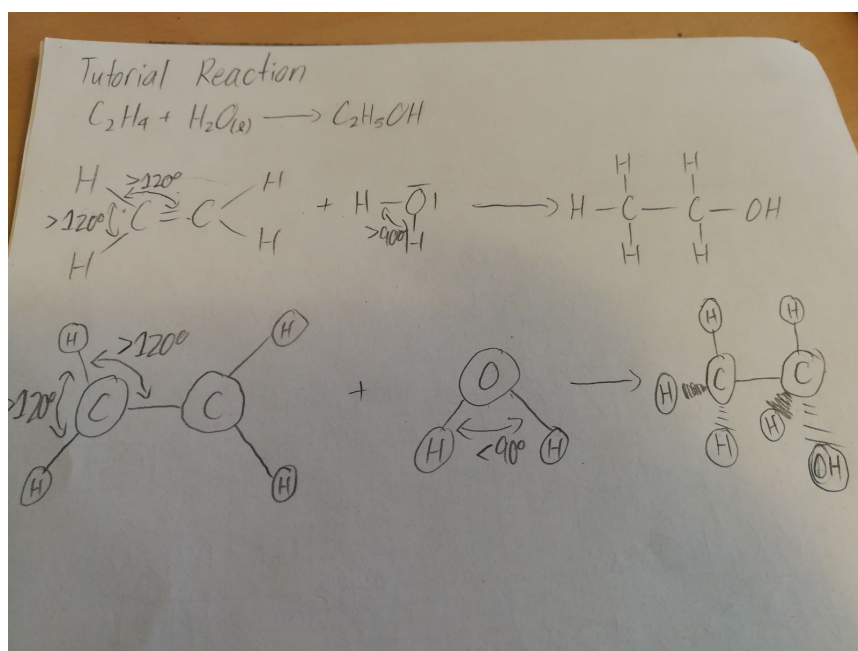 Tutorial Reaction
C₂H₄ + H₂O(l) → C₂H₅OH
H >120° H H H
>120° C = C + H - O → H - C - C - OH
H H >90° H H H
H >120° H H H
>120° C C + O → H C C
H H H <90° H H H OH